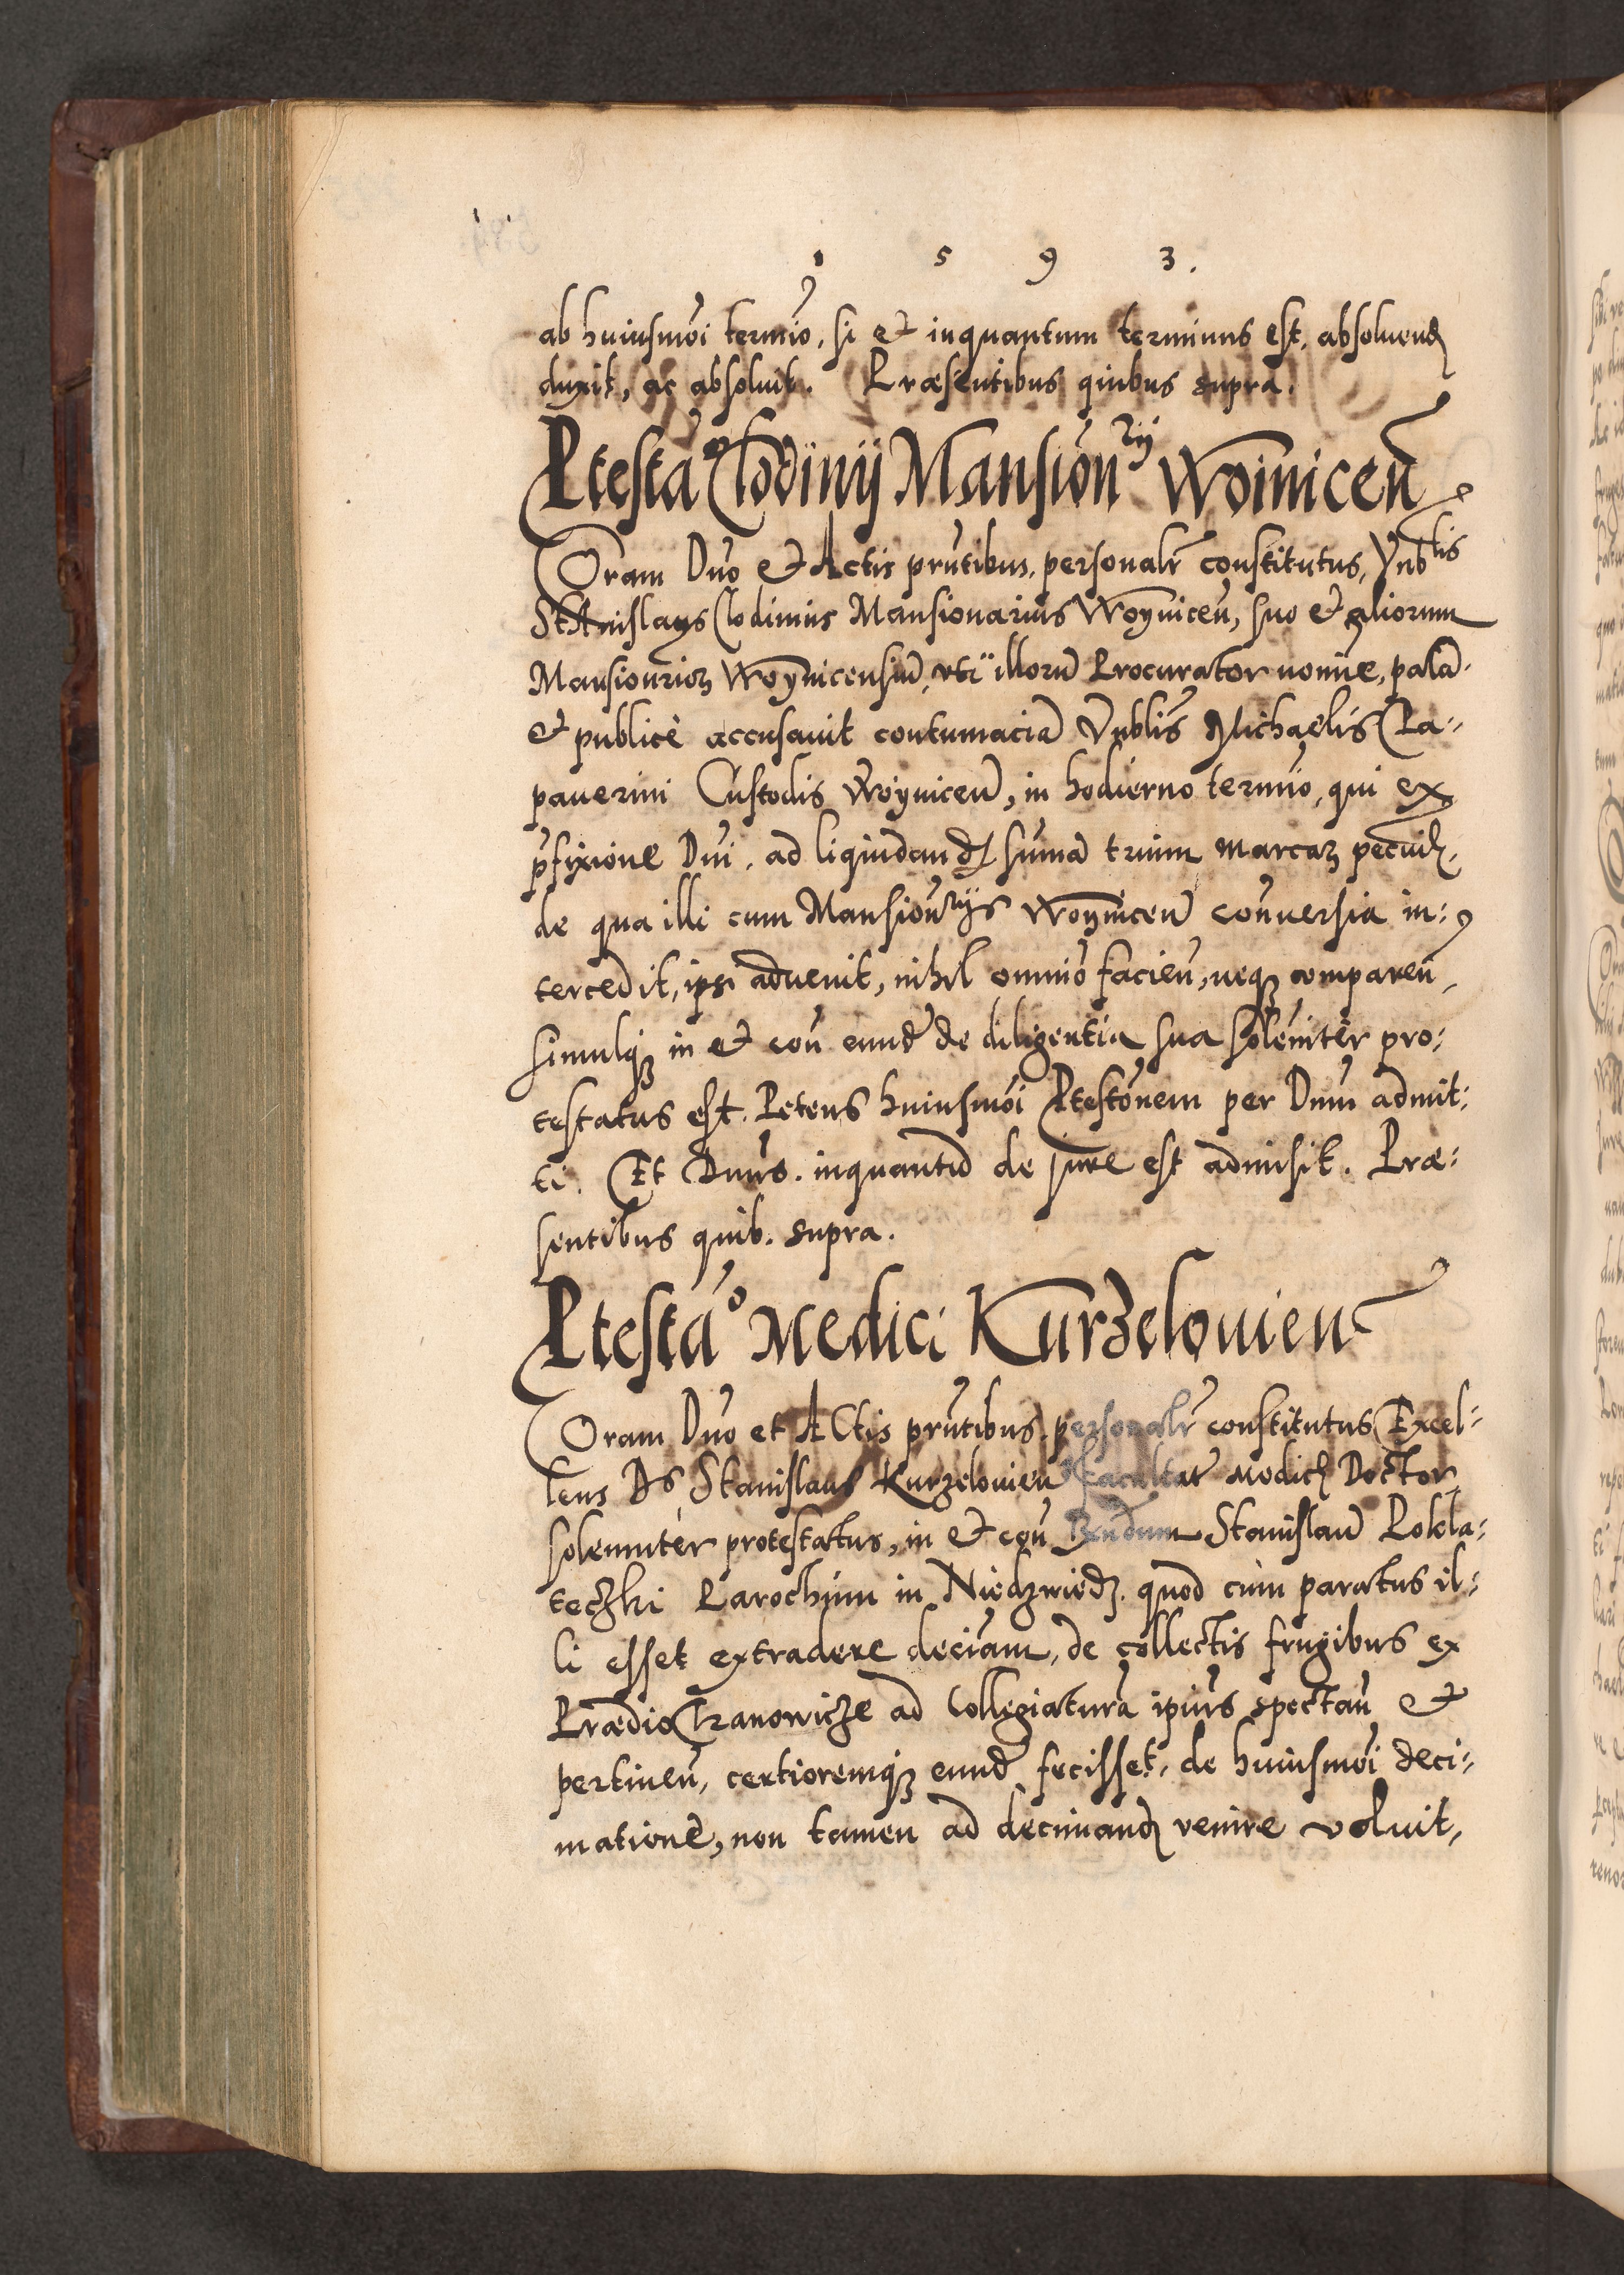 1 5 9 3.
ab huiusmõi termĩo, si et inquantum terminus est, absoluend
duxit, ac absoluit. Præsentibus quibus supra.
Ptestaõ Clodinij Mansionrij Woinicen̄
Coram Dn̄o et Actis pn̄tibus, personalr̄ constitutus, Vnblis
Stanislaus Clodinius Mansionarius Woynicen̄, suo et aliorum
Mansionrioꝝ Woynicensiũ, vti illorũ Procurator nomĩe, palã
et publicè accusauit contumaciã Vnblis Michaelis Pa-
pauerini Custodis Woynicen̄, in hodierno termĩo, qui ex
p̄fixione Dn̄i, ad liquidand sum̃ã trium marcaꝝ pecuñ,
de qua illi cum Mansionrijs Woynicen̄ con̄uersia in:
tercedit, ipsi aduenit, nihil omnĩo facien̄, neqꝫ comparen̄,
simulqꝫ in et con̄ eund̄ de diligentia sua solẽniter pro:
testatus est. Petens huiusmõi Ptestõnem per Dn̄um admit:
ti. Et Dn̄us. inquantũ de jure est admisit. Præ:
sentibus quib. supra.
Ptestaõ Medici Kurzelouien̄
Coram Dn̄o et Actis pn̄tibus, personalr̄ constitutus Excel:
lens Ds Stanislaus Kurzelouien̄ facultat̄ Medicę Doctor,
solenniter protestatus, in et con̄ Rn̄dum Stanislaũ Pokla:
teczki Parochum in Niedzwiedz. quod cùm paratus il:
li esset extradere decimam, de collectis frugibus ex
Prædio Chranowicze ad Collegiaturã ipius spectan̄ et
pertinen̄, certioremqꝫ eund̄ fecisset, de huiusmõi deci:
matione, non tamen ad decimand venire voluit,